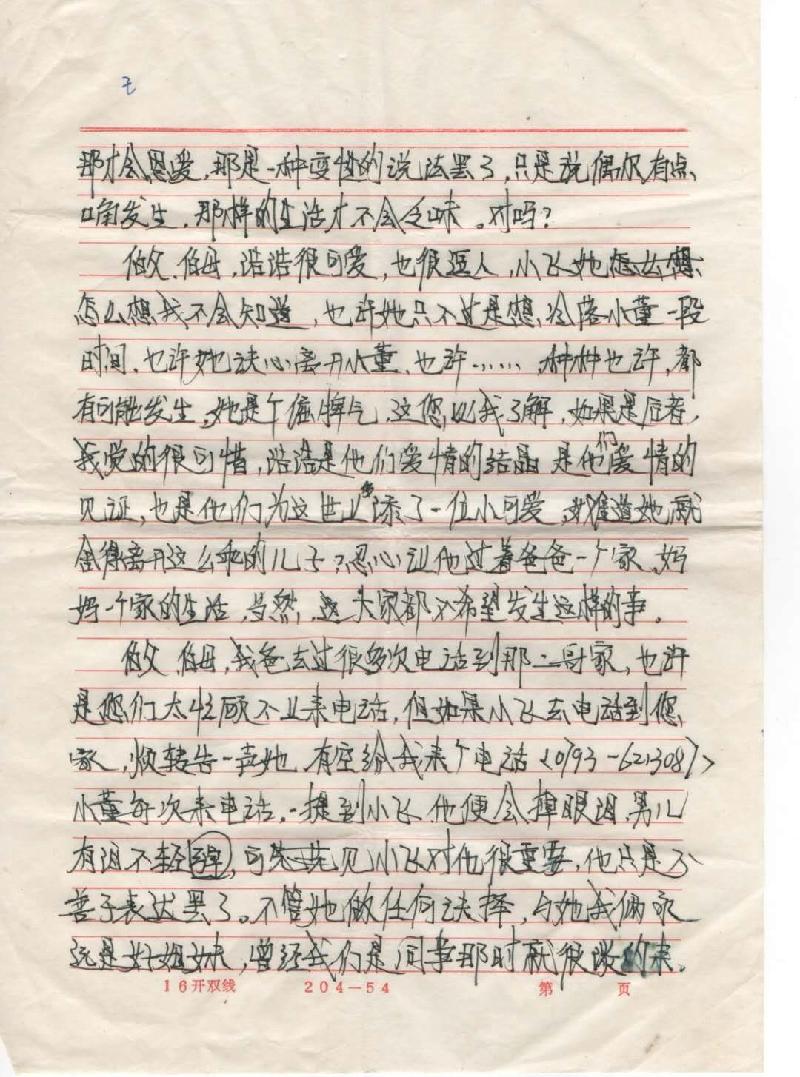 那才会恩爱，那是一种变性的说法罢了，只是说偶尔有点
口角发生，那样的生活才不会乏味。对吗？
伯父、伯母，浩浩很可爱，也很逗人，小飞她怎么想
怎么想我不会知道，也许她只不过是想冷落小董一段
时间，也许她决心离开小董，也许……种种也许，都
有可能发生，她是个倔脾气，这您比我了解，如果是后者，
我觉的很可惜，浩浩是他们爱情的结晶是他们爱情的
见证，也是他们为这世上多添了一位小可爱，难道她就
舍得离开这么乖的儿子？忍心让他过着爸爸一个家，妈
妈一个家的生活，当然，这大家都不希望发生这样的事。
伯父、伯母，我爸去过很多次电话到那二哥家，也许
是您们太忙顾不上来电话，但如果小飞去电话到您
家，烦转告一声她，有空给我来个电话〈0793-621308〉
小董每次来电话，一提到小飞他便会掉眼泪，男儿
有泪不轻弹，可先见小飞对他很重要，他只是不
善于表达罢了。不管她做任何决择，与她我俩永
远是好姐妹，曾经我们是同事那时就很谈的来。
16开双线 204-54 第 页